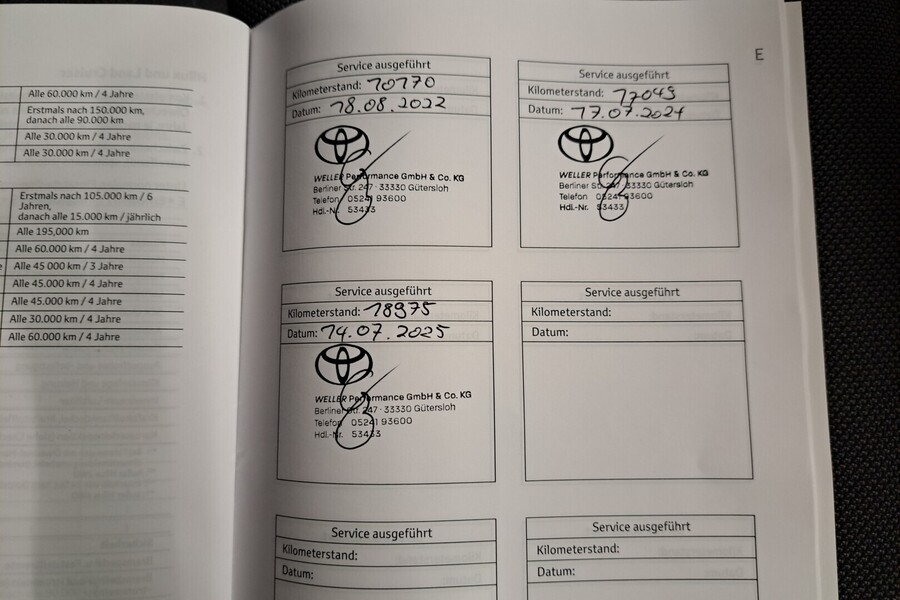 Alle 60.000 km / 4 Jahre
Erstmals nach 150.000 km,
danach alle 90.000 km
Alle 30.000 km / 4 Jahre
Alle 30.000 km / 4 Jahre
Erstmals nach 105.000 km / 6
Jahren,
danach alle 15.000 km / jährlich
Alle 195,000 km
Alle 60.000 km / 4 Jahre
Alle 45 000 km / 3 Jahre
Alle 45.000 km / 4 Jahre
Alle 45.000 km / 4 Jahre
Alle 30.000 km / 4 Jahre
Alle 60.000 km / 4 Jahre
E
Service ausgeführt
Kilometerstand:
Datum: 18.08.2022
WELLER Performance GmbH & Co. KG
Berliner Str. 247 · 33330 Gütersloh
Telefon 05241 93600
Hdl.-Nr. 53433
Service ausgeführt
Kilometerstand:
Datum: 17.07.2024
WELLER Performance GmbH & Co. KG
Berliner Str. 247 · 33330 Gütersloh
Telefon 05241 93600
Hdl.-Nr. 53433
Service ausgeführt
Kilometerstand: 18975
Datum: 14.07.2025
WELLER Performance GmbH & Co. KG
Berliner Str. 247 · 33330 Gütersloh
Telefon 05241 93600
Hdl.-Nr. 53433
Service ausgeführt
Kilometerstand:
Datum:
Service ausgeführt
Kilometerstand:
Datum:
Service ausgeführt
Kilometerstand:
Datum: